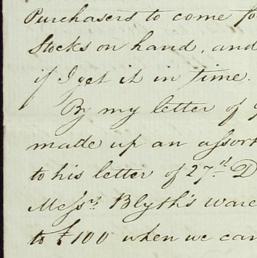 Purchasers to come fo
Stocks on hand, and
if I get it in time.
By my letter of 9
made up an assort
to his letter of 27th D
Messrs Blyth's Ware
to £100 when we can